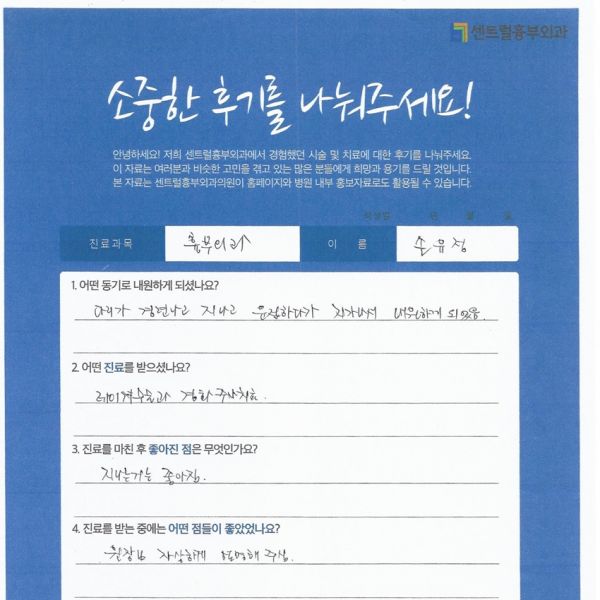 센트럴흉부외과
소중한 후기를 나눠주세요!
안녕하세요! 저희 센트럴흉부외과에서 경험했던 시술 및 치료에 대한 후기를 나눠주세요.
이 자료는 여러분과 비슷한 고민을 겪고 있는 많은 분들에게 희망과 용기를 드릴 것입니다.
본 자료는 센트럴흉부외과의원이 홈페이지와 병원 내부 홍보자료로도 활용될 수 있습니다.
작성일 년 월 일
진료과목 흉부외과 이 름 손유정
1. 어떤 동기로 내원하게 되셨나요?
다리가 경련나고 지나고 내원하게 되었음.
2. 어떤 진료를 받으셨나요?
레이저수술과 경화주사치료.
3. 진료를 마친 후 좋아진 점은 무엇인가요?
좋아짐.
4. 진료를 받는 중에는 어떤 점들이 좋았었나요?
원장님 자상하게 설명해 주심.